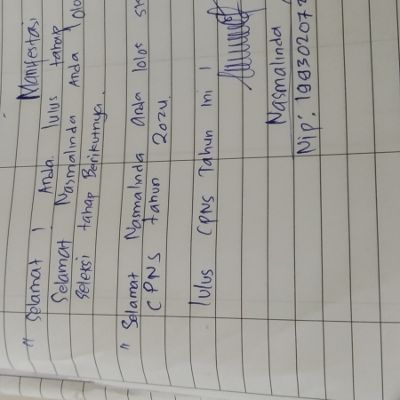 Manifestasi
" Selamat ! Anda lulus tahap
Selamat Nasmalinda Anda lolo
seleksi tahap Berikutnya.
" Selamat Nasmalinda anda lolos
CPNS tahun 2024.
lulus CPNS Tahun ini !
Nasmalinda
Nip: 199302072